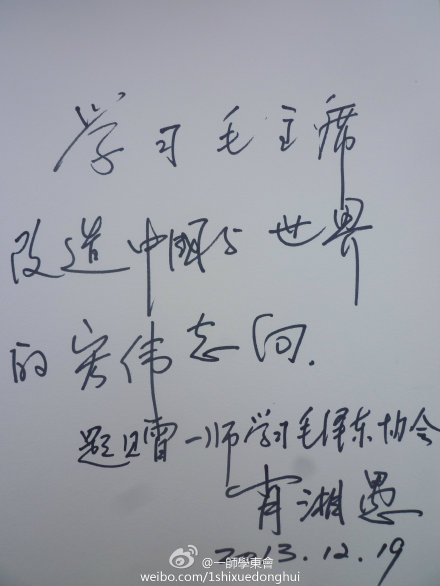 学习毛主席
改造中國与世界
的宏伟志向.
题 一师学习毛泽东协会
肖湘愚
2013.12.19
@一師學東會
weibo.com/1shixuedonghui